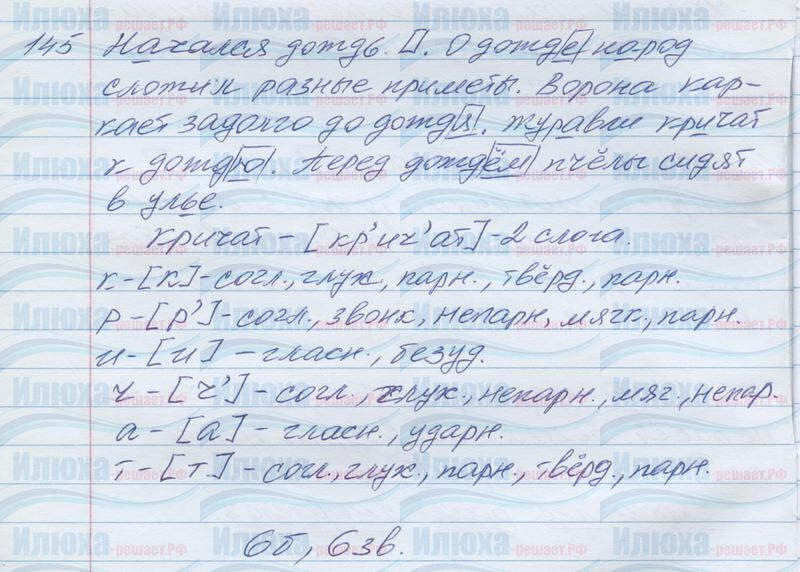 145 Начался дождь. □. О дожде народ
сложил разные приметы. Ворона кар-
кает задолго до дождя. Журавли кричат
к дождю. Перед дождём пчёлы сидят
в улье.
Кричат – [кр'ич'ат] – 2 слога.
к – [к] – согл., глух., парн., твёрд., парн.
р – [р'] – согл., звонк, непарн, мягк., парн.
и – [и] – гласн., безуд.
ч – [ч'] – согл., глух., непарн., мяг., непар.
а – [а] – гласн., ударн.
т – [т] – согл., глух., парн., твёрд., парн.
6б, 6зв.
Илюха-решает.РФ